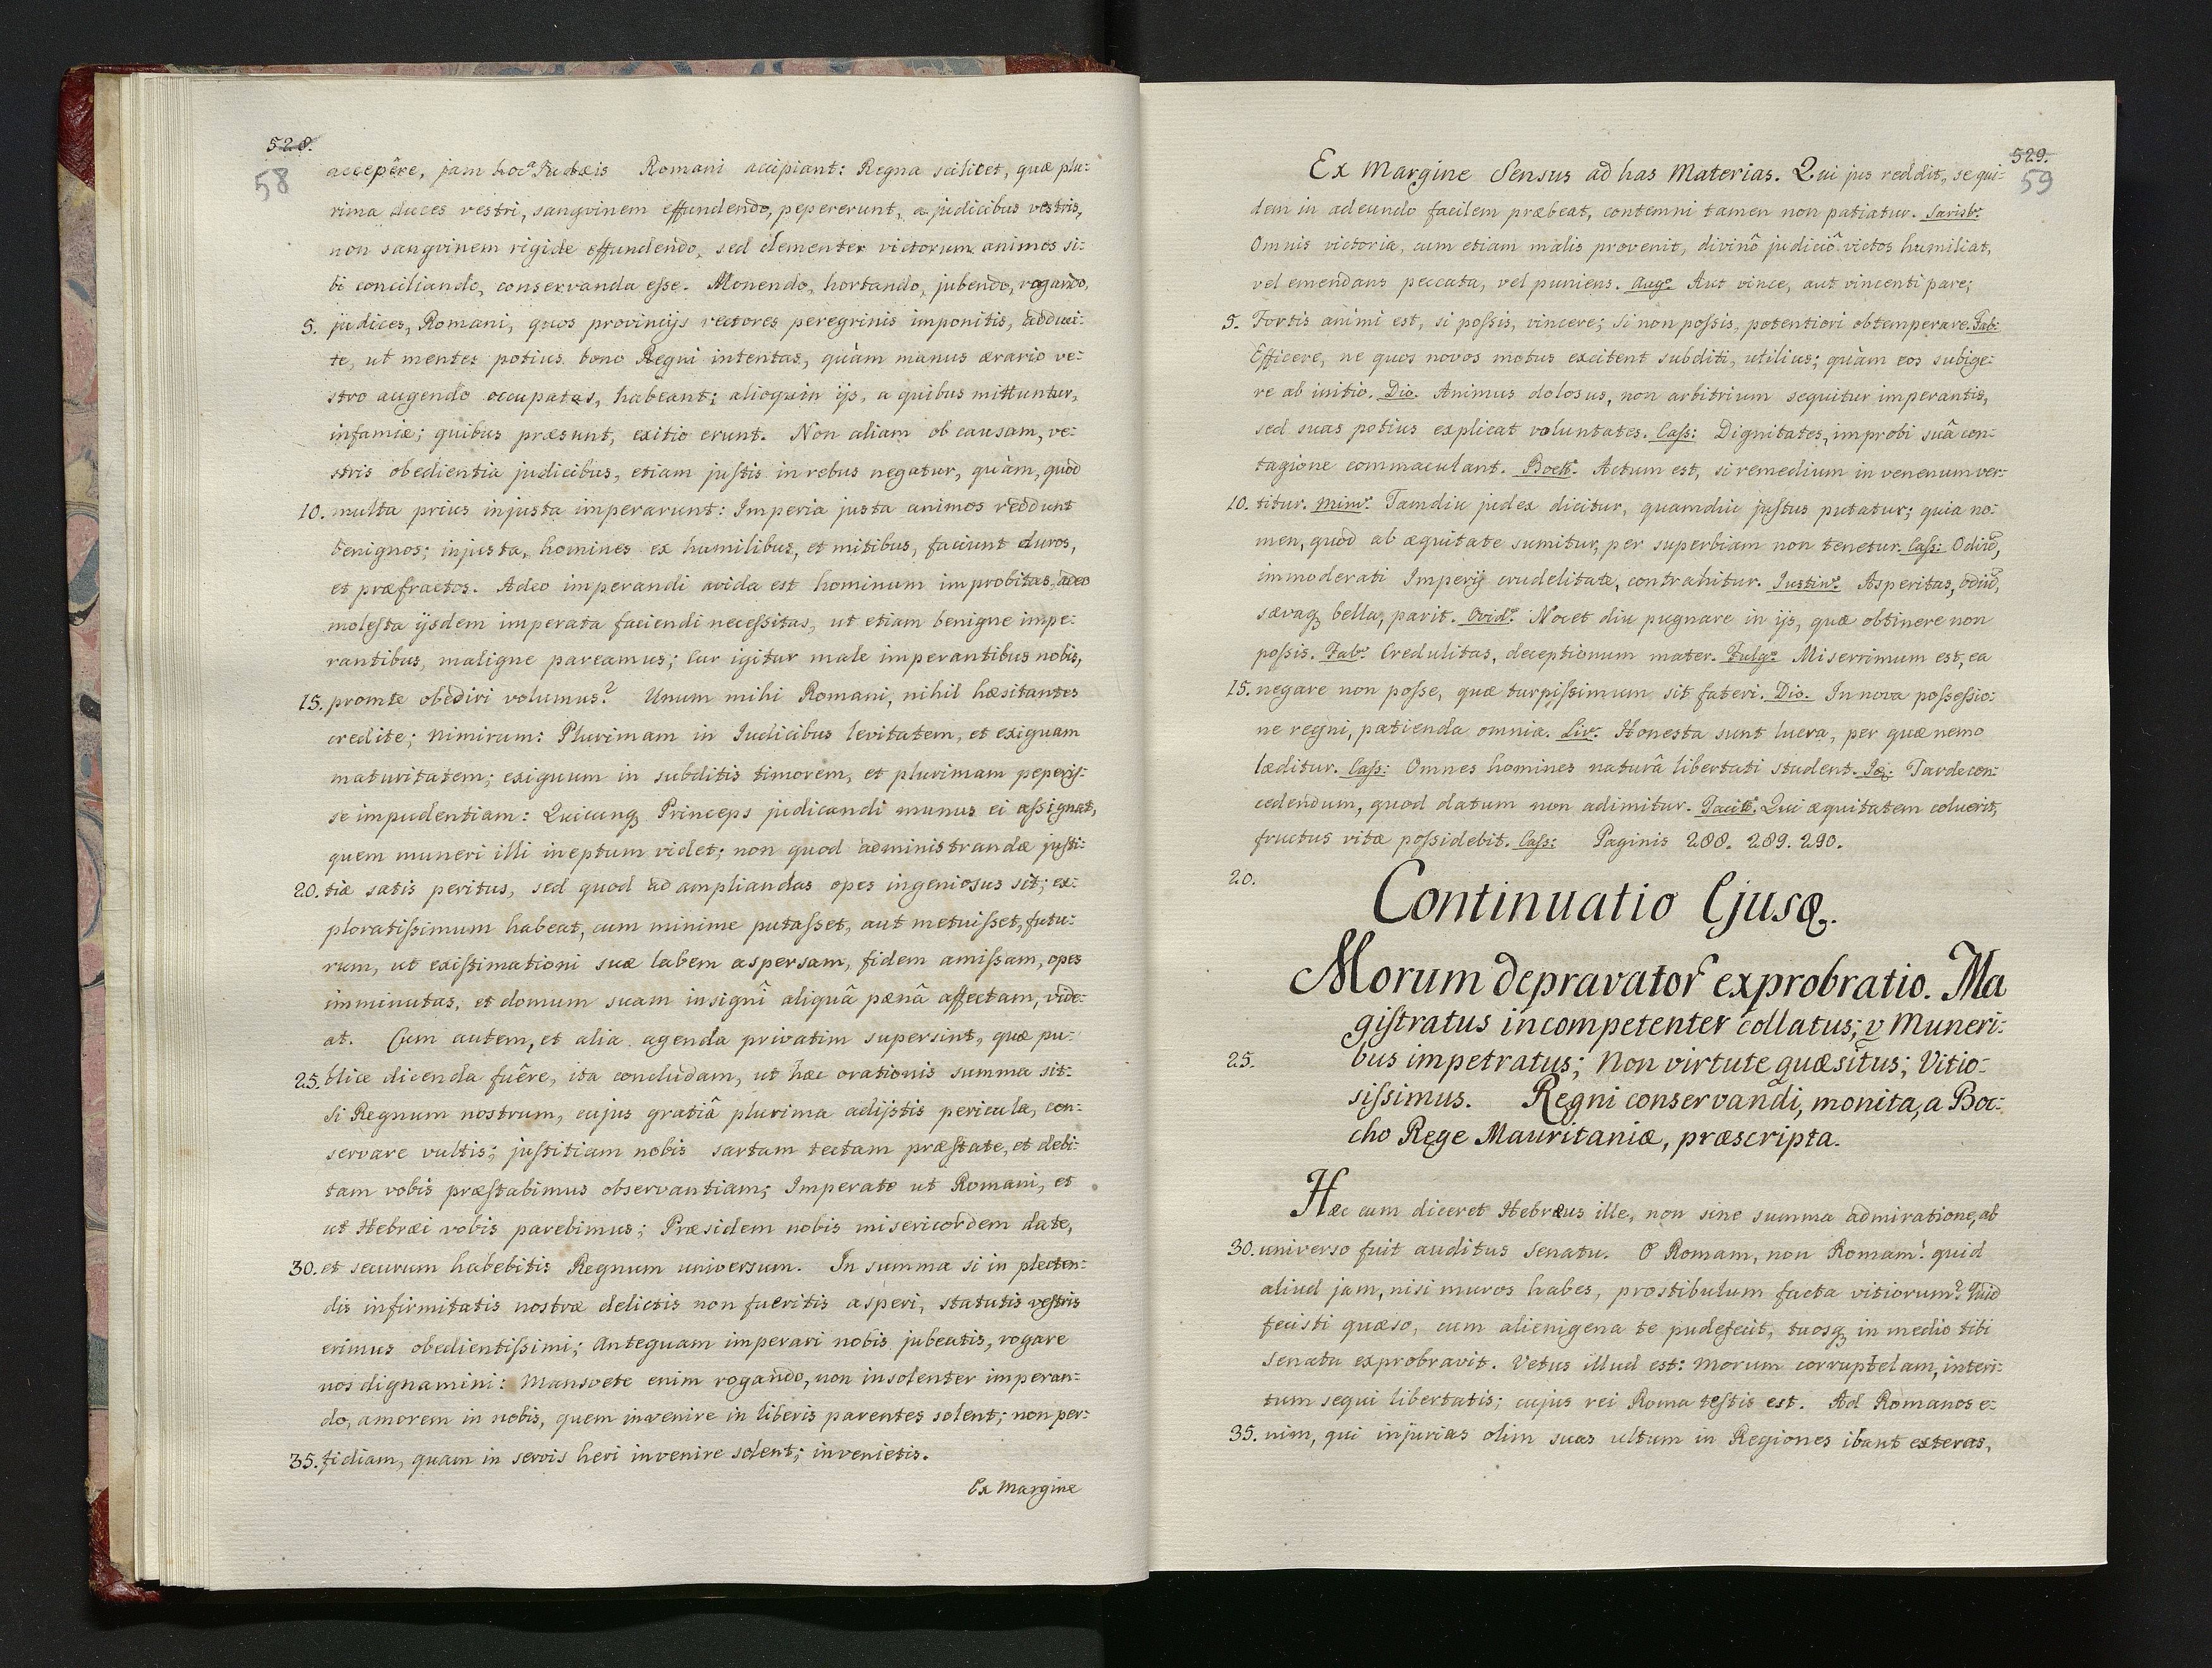 528.
58
accepêre, jam hoc a Judæis Romani accipiant: Regna scilicet, quæ plu:
rima duces vestri, sangvinem effundendo, pepererunt, a judicibus vestris,
non sangvinem rigide effundendo, sed clementer victorum animos si:
bi conciliando, conservanda esse. Monendo, hortando, jubendo, rogando,
5. judices, Romani, quos provincijs rectores peregrinis imponitis, adduci:
te, ut mentes potius bono Regni intentas, quàm manus ærario ve:
stro augendo occupatas, habeant; alioquin ijs, a quibus mittuntur,
infamiæ; quibus præsunt, exitio erunt. Non aliam ob causam, ve:
stris obedientia judicibus, etiam justis in rebus negatur, quàm, quod
10. multa prius injusta imperarunt: Imperia justa animos reddunt
benignos; injusta, homines ex humilibus, et mitibus, faciunt duros,
et præfractos. Adeo imperandi avida est hominum improbitas, adeo
molesta ijsdem imperata faciendi necessitas, ut etiam benigne impe:
rantibus, maligne pareamus; Cur igitur male imperantibus nobis,
15. promte obediri volumus? Unum mihi Romani, nihil hæsitantes
credite; nimirum: Plurimam in Judicibus levitatem, et exiguam
maturitatem; exiguum in subditis timorem, et plurimam peperis:
se impudentiam: Quicunq Princeps judicandi munus ei assignat,
quem muneri illi ineptum videt; non quod administrandæ justi:
20. tiæ satis peritus, sed quod ad ampliandas opes ingeniosus sit; ex:
ploratissimum habeat, cum minime putasset, aut metuisset, futu:
rum, ut existimationi suæ labem aspersam, fidem amissam, opes
imminutas, et domum suam insignî aliquâ pænâ affectam, vide:
at. Cum autem, et alia agenda privatim supersint, quæ pu:
25. blice dicenda fuêre, ita concludam, ut hæc orationis summa sit:
Si Regnum nostrum, cujus gratiâ plurima adijstis pericula, con:
servare vultis; justitiam nobis sartam tectam præstate, et debi:
tam vobis præstabimus observantiam; Imperate ut Romani, et
ut Hebræi vobis parebimus; Præsidem nobis misericordem date,
30. et securum habebitis Regnum universum. In summa si in plecten:
dis infirmitatis nostræ delictis non fueritis asperi, statutis vestris
erimus obedientissimi; Antequam imperari nobis jubeatis, rogare
nos dignamini: Mansvete enim rogando, non insolenter imperan:
do, amorem in nobis, quem invenire in liberis parentes solent; non per:
35. fidiam, quam in servis heri invenire solent; invenietis.
Ex Margine
529.
59
Ex Margine Sensus ad has Materias. Qui jus reddit, se qui:
dem in adeundo facilem præbeat, contemni tamen non patiatur. Sarisb:
Omnis victoria, cum etiam malis provenit, divinô judiciô victos humiliat,
vel emendans peccata, vel puniens. Aug: Aut vince, aut vincenti pare;
5. Fortis animi est, si possis, vincere; si non possis, potentiori obtemperare. Fab:
Efficere, ne quos novos motus excitent subditi, utilius; quàm eos subige:
re ab initio. Dio. Animus dolosus, non arbitrium sequitur imperantis,
sed suas potius explicat voluntates. Cass: Dignitates, improbi suâ con:
tagione commaculant. Boeth. Actum est, si remedium in venenum ver:
10. titur. Mimo. Tamdiu judex dicitur, quamdiu justus putatur; quia no:
men, quod ab æquitate sumitur, per superbiam non tenetur. Cass: Odiũ,
immoderati Imperij crudelitate, contrahitur. Justin. Asperitas, odiũ,
sævaq bella, parit. Ovid. Nocet diu pugnare in ijs, quæ obtinere non
possis. Fab. Credulitas, deceptionum mater. Fulg. Miserrimum est, ea
15. negare non posse, quæ turpissimum sit fateri. Dio. In nova possessio:
ne regni, patienda omnia. Liv. Honesta sunt lucra, per quæ nemo
læditur. Cass: Omnes homines naturâ libertati student. Tarde con:
cedendum, quod datum non adimitur. Tacit. Qui æquitatem coluerit,
fructus vitæ possidebit. Cass: Paginis 288. 289. 290.
20.
Continuatio Ejusq.
Morum depravator exprobratio. Ma
gistratus incompetenter collatus; v Muneri:
25. bus impetratus; Non virtute quæsitus; Vitio:
sissimus. Regni conservandi, monita, a Boc:
cho Rege Mauritaniæ, præscripta.
Hæc cum diceret Hebræus ille, non sine summa admiratione, ab
30. universo fuit auditus Senatu. O Romam, non Romam! quid
aliud jam, nisi muros habes, prostibulum facta vitiorum? Quid
fecisti quæso, cum alienigena te pudefecit, tuosq in medio tibi
Senatu exprobravit. Vetus illud est: Morum corruptelam, interi:
tum sequi libertatis; cujus rei Roma testis est. Ad Romanos e:
35. nim, qui injurias olim suas ultum in Regiones ibant exteras,